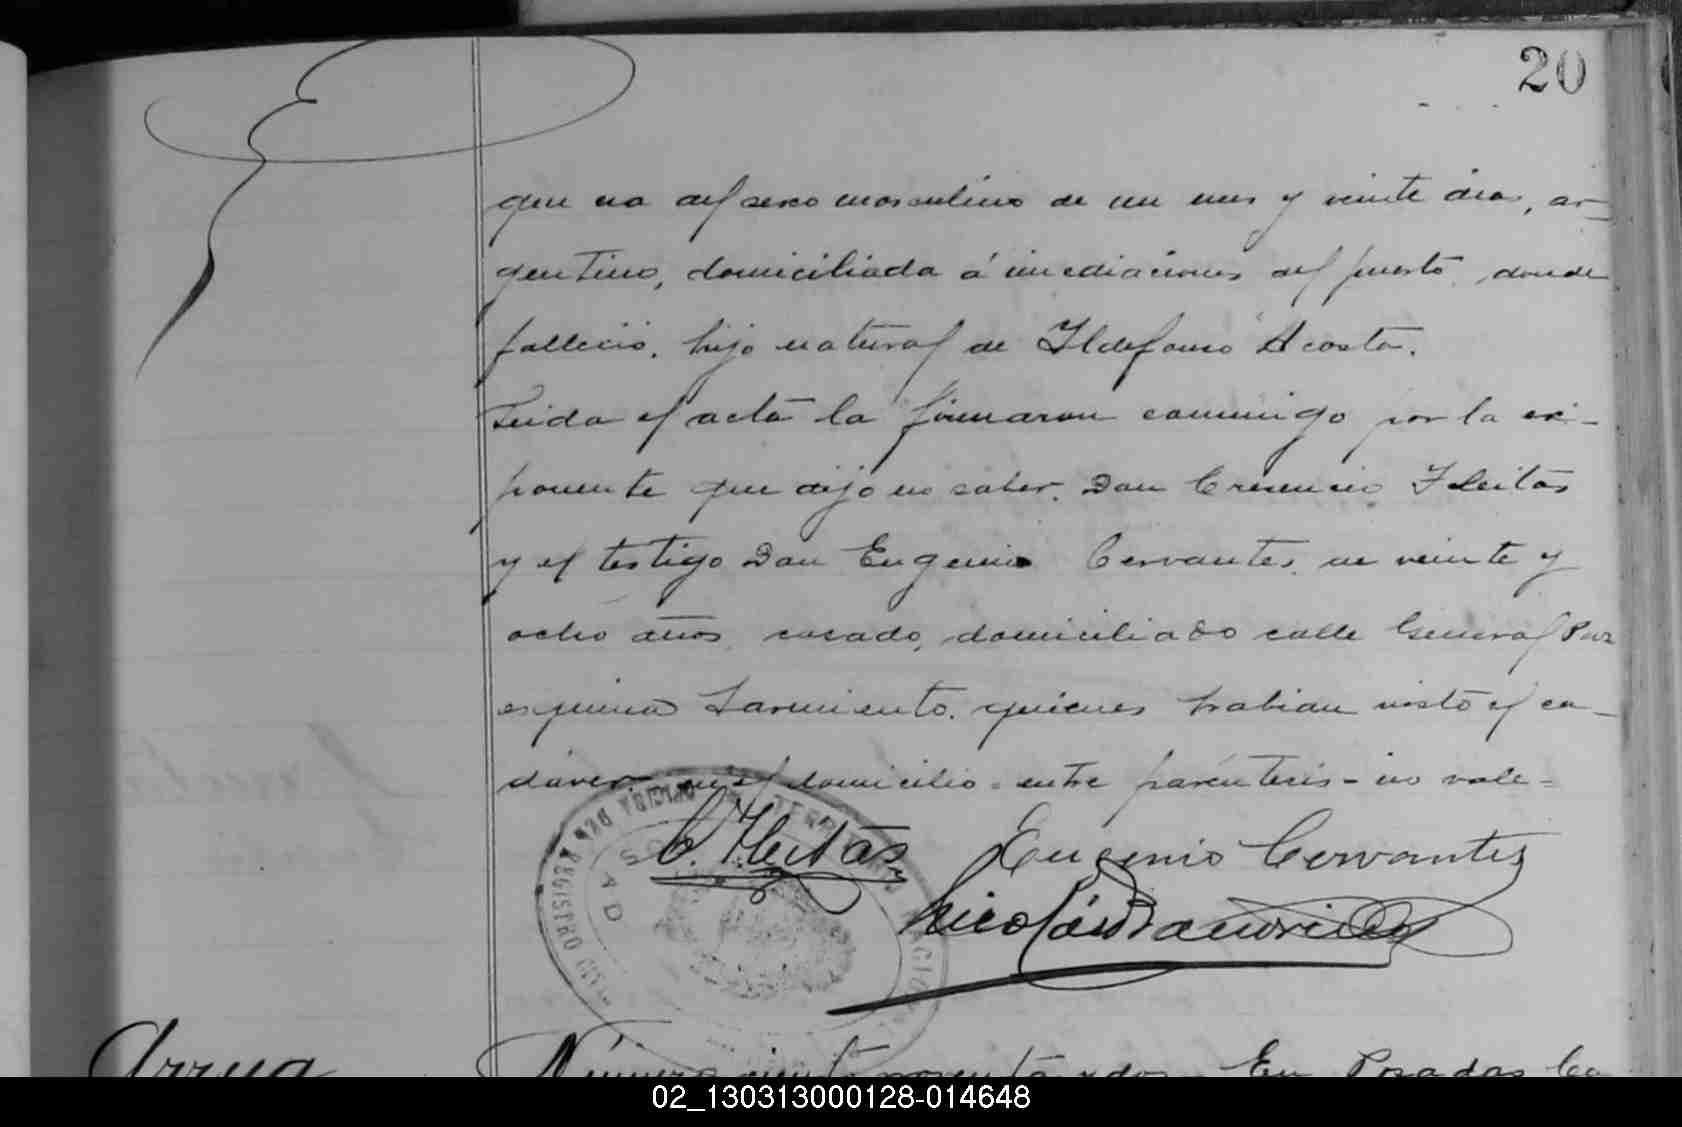 20
que era del sexo masculino de un mes y veinte dias, ar-
gentino, domiciliada á inmediaciones del puerto, donde
fallecio, hijo natural de Ildefonso Acosta.
Leida el acta la firmaron conmigo por la ex-
ponente que dijo no saber, Don Cresencio Fleitas
y el testigo Don Eugenio Cervantes, de veinte y
ocho años, casado, domiciliado calle General Paz
esquina Sarmiento, quienes habian visto el ca-
dáver en el domicilio = entre paréntesis - no vale =
C. Fleitas
Eugenio Cervantes
Nicolás
OFICINA DEL REGISTRO CIVIL
Arrua
Número ciento noventa y dos. En Posadas Ca
02_130313000128-014648